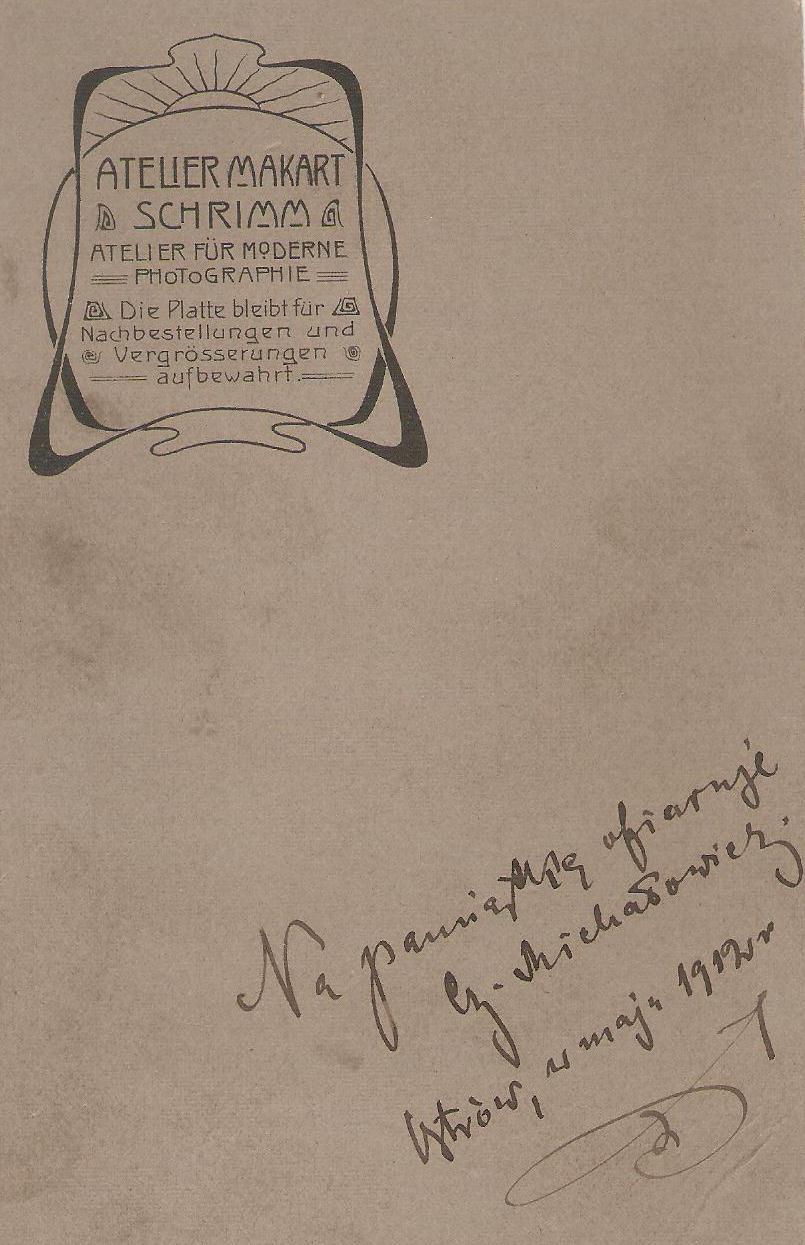 ATELIER MAKART
SCHRIMM
ATELIER FÜR MODERNE
PHOTOGRAPHIE
Die Platte bleibt für
Nachbestellungen und
Vergrösserungen
aufbewahrt.
Na pamiątkę ofiaruje
Cz. Michałowicz.
Ostrów, w maju 1912 r